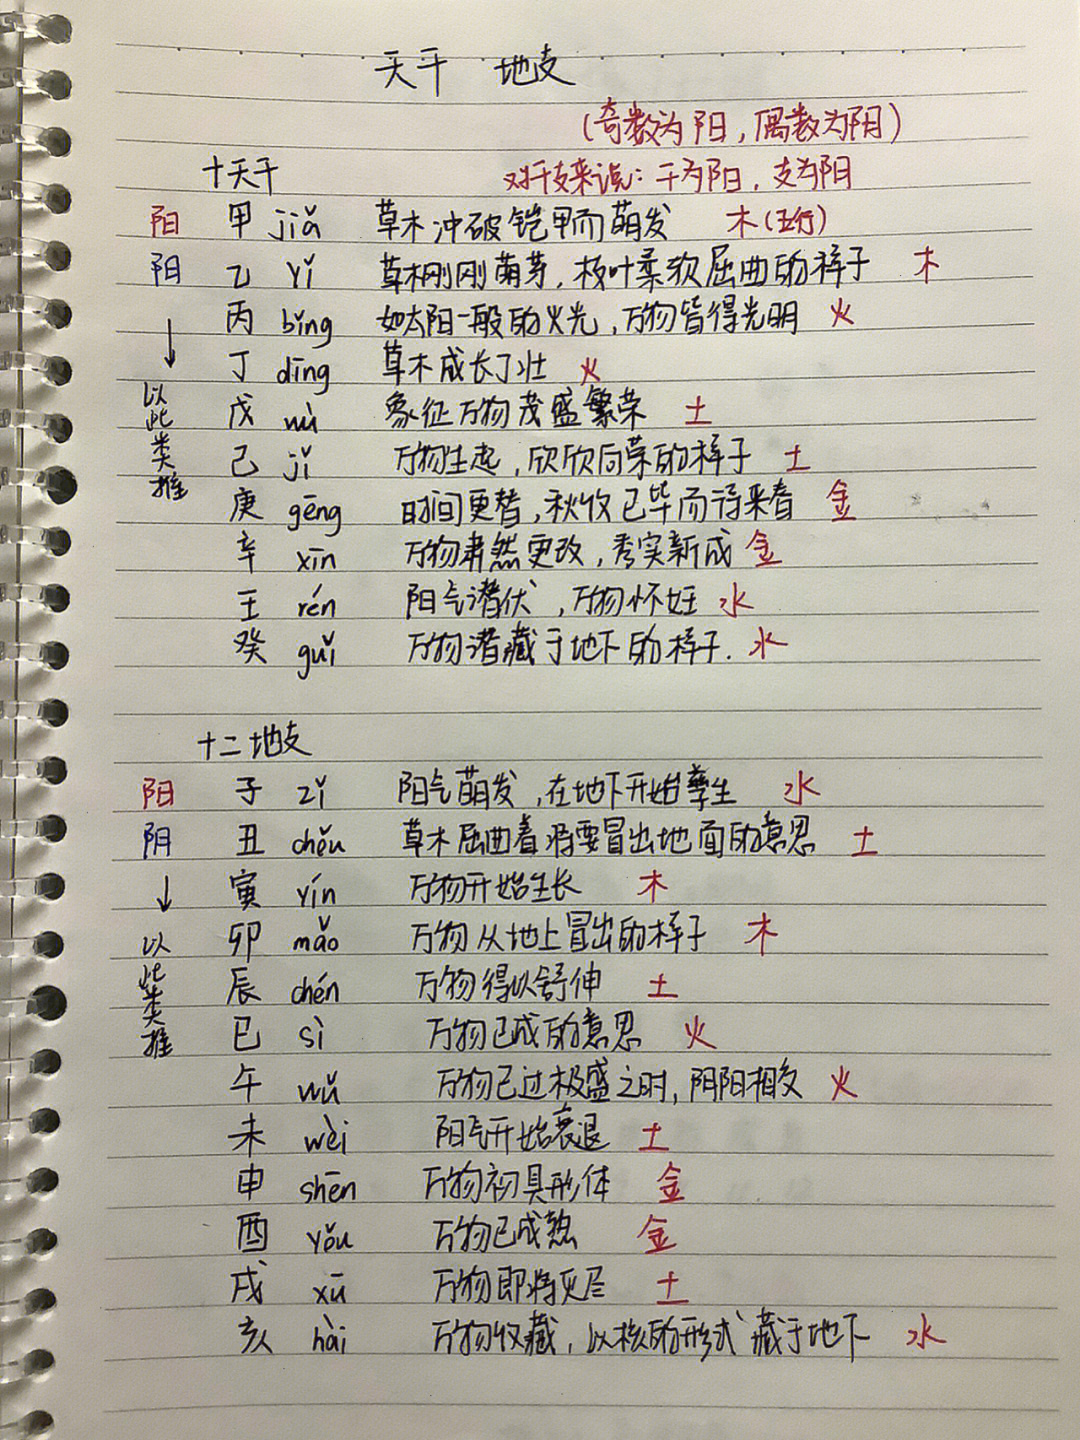 天干 地支
(奇数为阳,偶数为阴)
十天干 对干支来说:干为阳,支为阴
阳 甲 jiǎ 草木冲破铠甲而萌发 木(五行)
阴 乙 yǐ 草木刚刚萌芽,枝叶柔软屈曲的样子 木
丙 bǐng 如太阳一般的火光,万物皆得光明 火
↓ 丁 dīng 草木成长丁壮 火
以此类推 戊 wù 象征万物茂盛繁荣 土
己 jǐ 万物生起,欣欣向荣的样子 土
庚 gēng 时间更替,秋收已毕而待来春 金
辛 xīn 万物肃然更改,秀实新成 金
壬 rén 阳气潜伏,万物怀妊 水
癸 guǐ 万物潜藏于地下的样子. 水
十二地支
阳 子 zǐ 阳气萌发,在地下开始孳生 水
阴 丑 chǒu 草木屈曲着将要冒出地面的意思 土
↓ 寅 yín 万物开始生长 木
以此类推 卯 mǎo 万物从地上冒出的样子 木
辰 chén 万物得以舒伸 土
巳 sì 万物已成的意思 火
午 wǔ 万物已过极盛之时,阴阳相交 火
未 wèi 阳气开始衰退 土
申 shēn 万物初具形体 金
酉 yǒu 万物已成熟 金
戌 xū 万物即将灭尽 土
亥 hài 万物收藏,以核的形式藏于地下 水